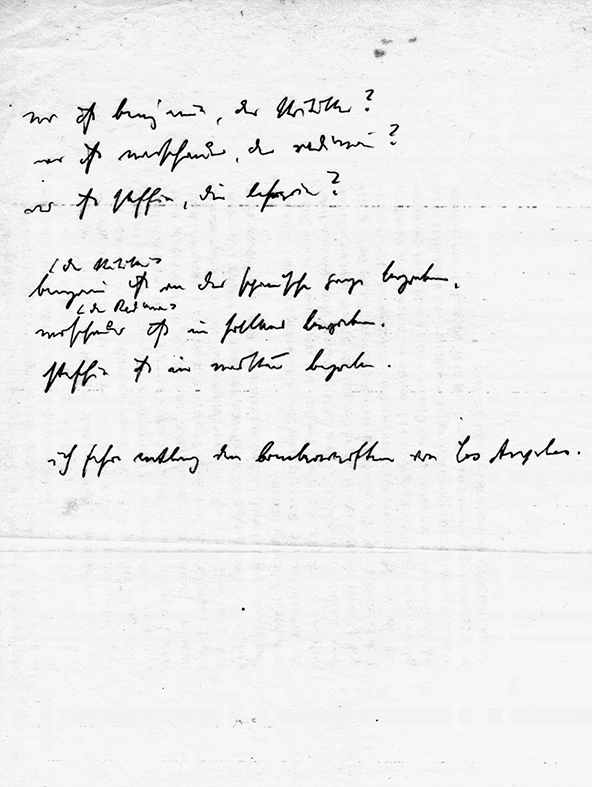 wo ist benjamin, der Kritiker?
wo ist warschauer, der radiomann?
wo ist steffin, die lehrerin?
< der Kritiker >
benjamin ist an der spanischen grenze begraben.
< der Radiomann >
warschauer ist in holland begraben.
steffin ist in moskau begraben.
ich fahre entlang den bomberwerften von Los Angeles.